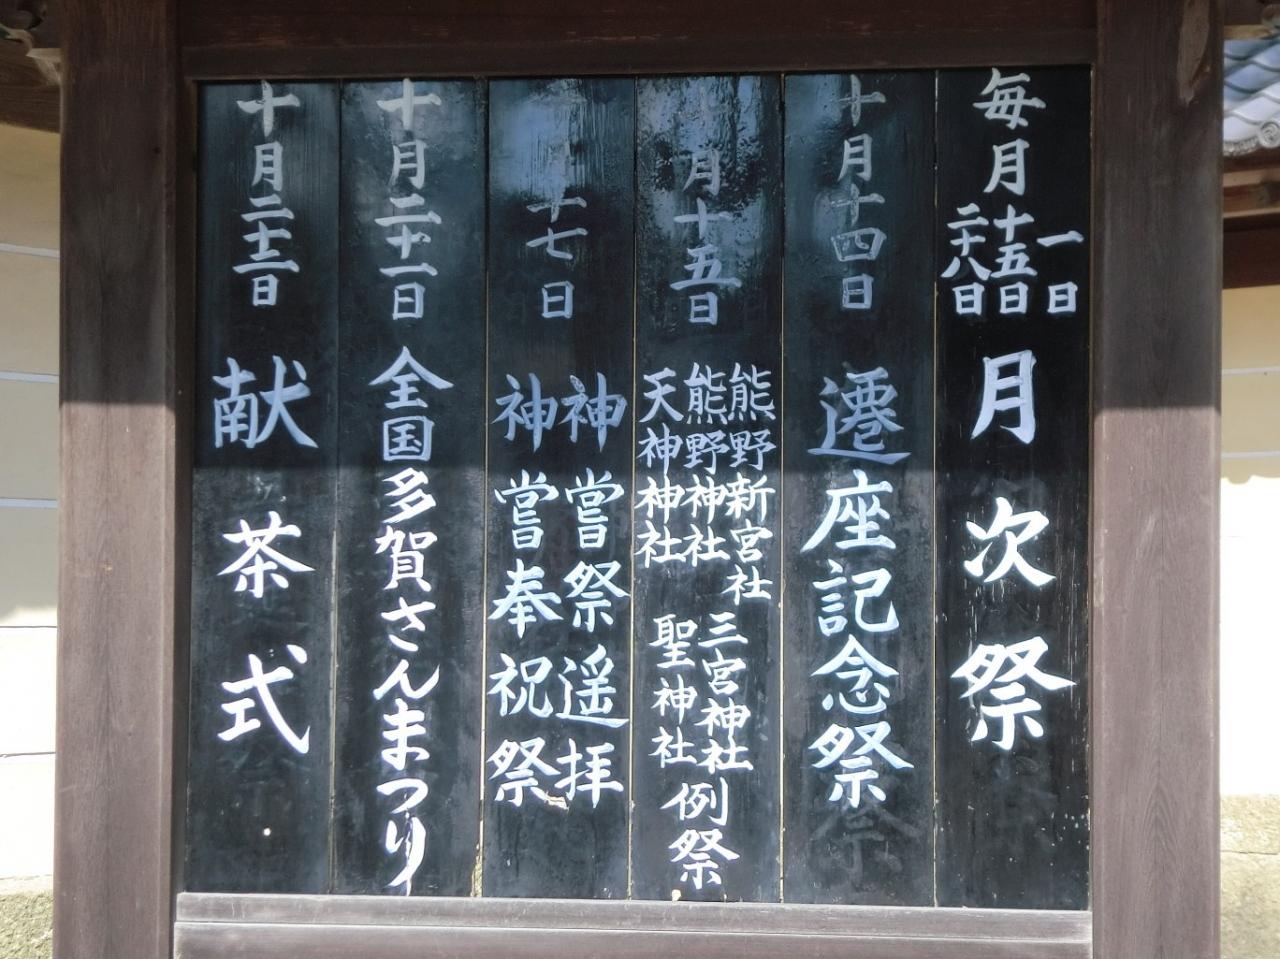 毎月 一日 十五日 二十八日 月次祭
十月十四日 遷座記念祭
月十五日 熊野新宮社 熊野神社 天神神社 三宮神社 聖神社 例祭
十七日 神嘗祭遥拝 神嘗奉祝祭
十月二十一日 全国多賀さんまつり
十月二十三日 献茶式